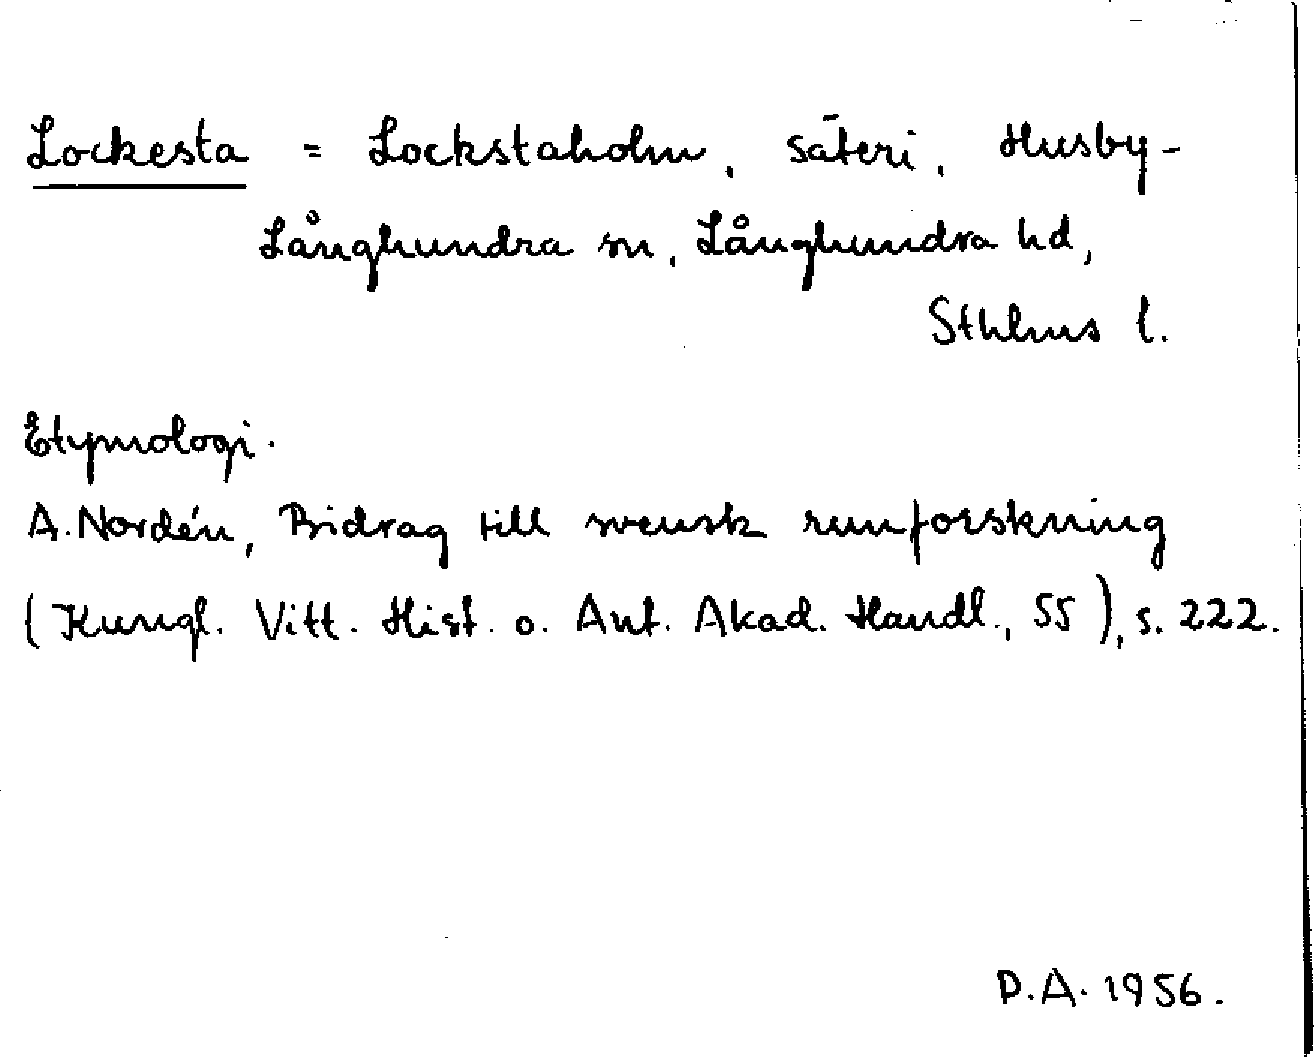 Lockesta = Lockstaholm, säteri, Husby-
Långhundra sn, Långhundra hd,
Sthlms l.
Etymologi.
A. Nordén, Bidrag till svensk runforskning
(Kungl. Vitt. Hist. o. Ant. Akad. Handl., 55), s. 222.
D.A. 1956.